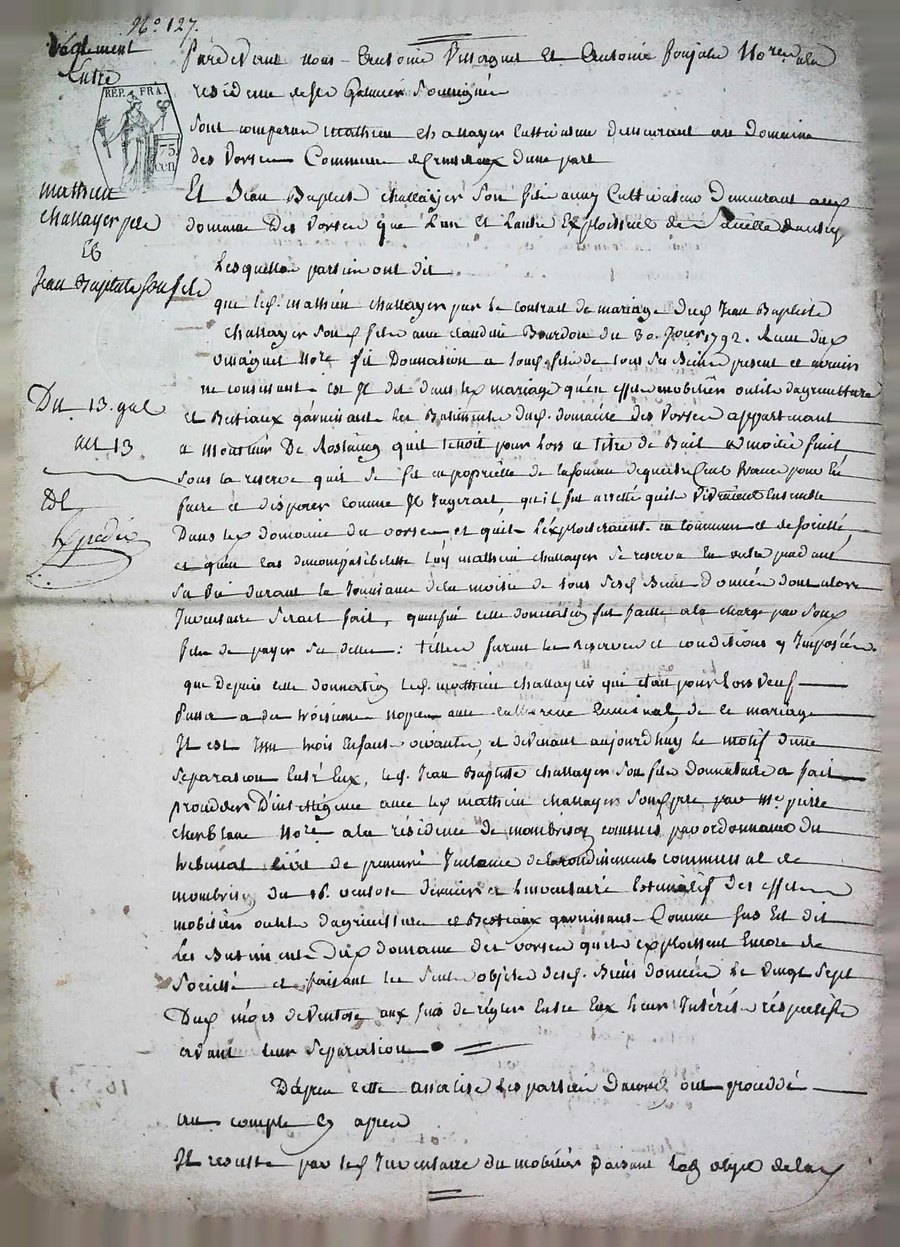 N.º 127.
Règlement
Entre
REP. FRA.
75
cen
Mathieu
challayer pere
Et
Jean Baptiste son fils
Du 13 gal
an 13
Edl
Expédié
Pardevant nous Antoine Et Antoine No.res a la
résidence de St Galmier Soussignés
Sont comparu Mathieu challayer Cultivateur demeurant au Domaine
des Vorses Commune d'une part
Et Jean Baptiste challayer Son fils aussi Cultivateur Demeurant aux
domaine Des Vorses que L'un et L'autre Exploittent de
Lesquelles parties ont dit
que led. mathieu challayer par Le contrat de mariage dud. Jean Baptiste
challayer Son fils avec claudine Bourdon du 30. 1792. Reçu dud.
No.re fit Donnation a Sond. fils de tous Ses Biens present et avenir
ne consistant est Il dit dans led. mariage qu'en effets mobiliers outils d'agriculture
et Bestiaux garnissant Les Batiments dud. domaine des Vorses appartenant
a Monsieur De Rostaing quil tenoit pour Lors a titre de Bail a moitié fruit
Sous la reserve quil Se fit en propriette de la Somme de francs pour En
faire et disposer comme Il Jugerait, quil fut arretté quils Vivraient Ensemble
Dans led. domaine des vorses et quils L'exploiteraient en commun et de Societté,
et quen cas d'incompatibilitté Luy mathieu challayer Se reserva En outre pendant
Sa Vie durant la Jouissance de la moitié de tous Sesd. Biens donnés dont alors
Inventaire Serait fait, quenfin cette donnation fut faitte a la charge par Sond.
fils de payer Ses dettes: telles furent les Reserves et conditions y Imposées.
que Depuis cette donnation led. mathieu challayer qui etait pour Lors Veuf
Passa a des troisieme Nopces avec catherine de ce mariage
Il est trois Enfants vivants, et devenant aujourdhuy le motif d'une
Separation Entre Eux, led. Jean Baptiste challayer Son fils Donnataire a fait
procedder D'intelligence avec led. mathieu challayer Sond. pere, par Me. pierre
No.re a la résidence de montbrison commis par ordonnance du
tribunal civil de premiere Instance de l'arrondissement communal de
montbrison du 16. ventose dernier a L'inventaire Estimatif des effets
mobiliers outils d'agriculture et Bestiaux garnissants Comme Sus Est dit
Les Batiments Dud. domaine des vorses quils exploittent Encore de
Societté et faisant les Seuls objets desd. Biens donnés Le Vingt Sept
Dud. mois de Ventose aux fins de régler Entre Eux Leurs Intérêts réspectifs
avant leur Separation
D'apres cette Les parties D'accord ont proceddé
au compte Cy apres
Il resulte par led. Inventaire du mobilier faisant L'objet de la